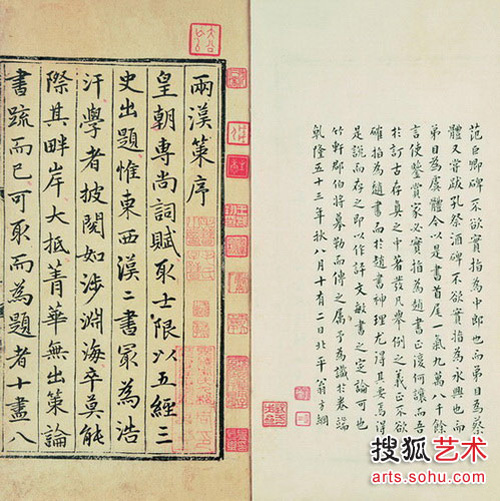 范巨卿碑不欲實指為中郎也而弟目為蔡
體又嘗跋孔祭酒碑不欲實指為永興也而
弟目為虞體今以是書首尾一氣九萬八千餘
言使鑒賞家必實指為趙書正復何讓而吾
於訂古存真之中著發凡舉例之義正不欲
確指為趙書而於趙書神理尤得其為得
是說而存之即以作許文敏書之定論可也
竹軒郡伯將摹勒而傳之屬予為識於卷端
乾隆五十三年秋八月十有二日北平翁方綱
兩漢策序
皇朝專尚詞賦取士限以五經三
史出題惟東西漢二書冣為浩
汗學者披閱如涉淵海卒莫能
際其畔岸大抵菁華無出策論
書疏而已可取而為題者十盡八
搜狐艺术
arts.sohu.com